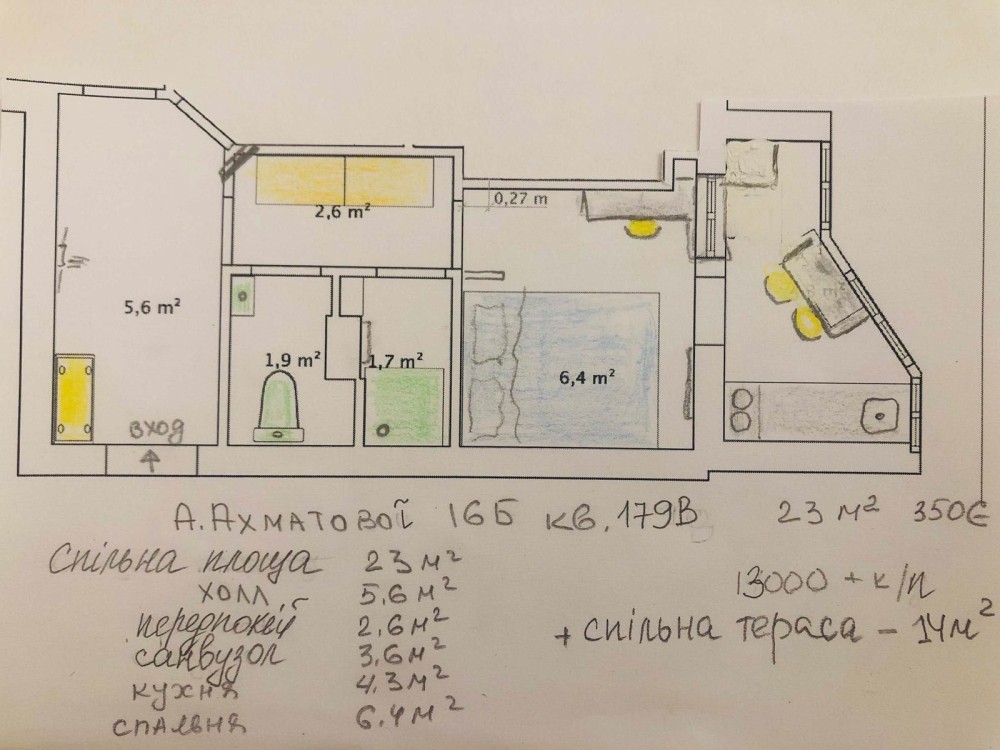 0,27 m
2,6 m²
5,6 m²
1,9 m²
1,7 m²
6,4 m²
вход
А.Ахматової 16Б кв.179В 23 м² 350€
Спільна площа 23 м²
холл 5,6 м²
передпокій 2,6 м²
санвузол 3,6 м²
кухня 4,3 м²
спальня 6,4 м²
13000 + к/п
+ спільна тераса – 14м²